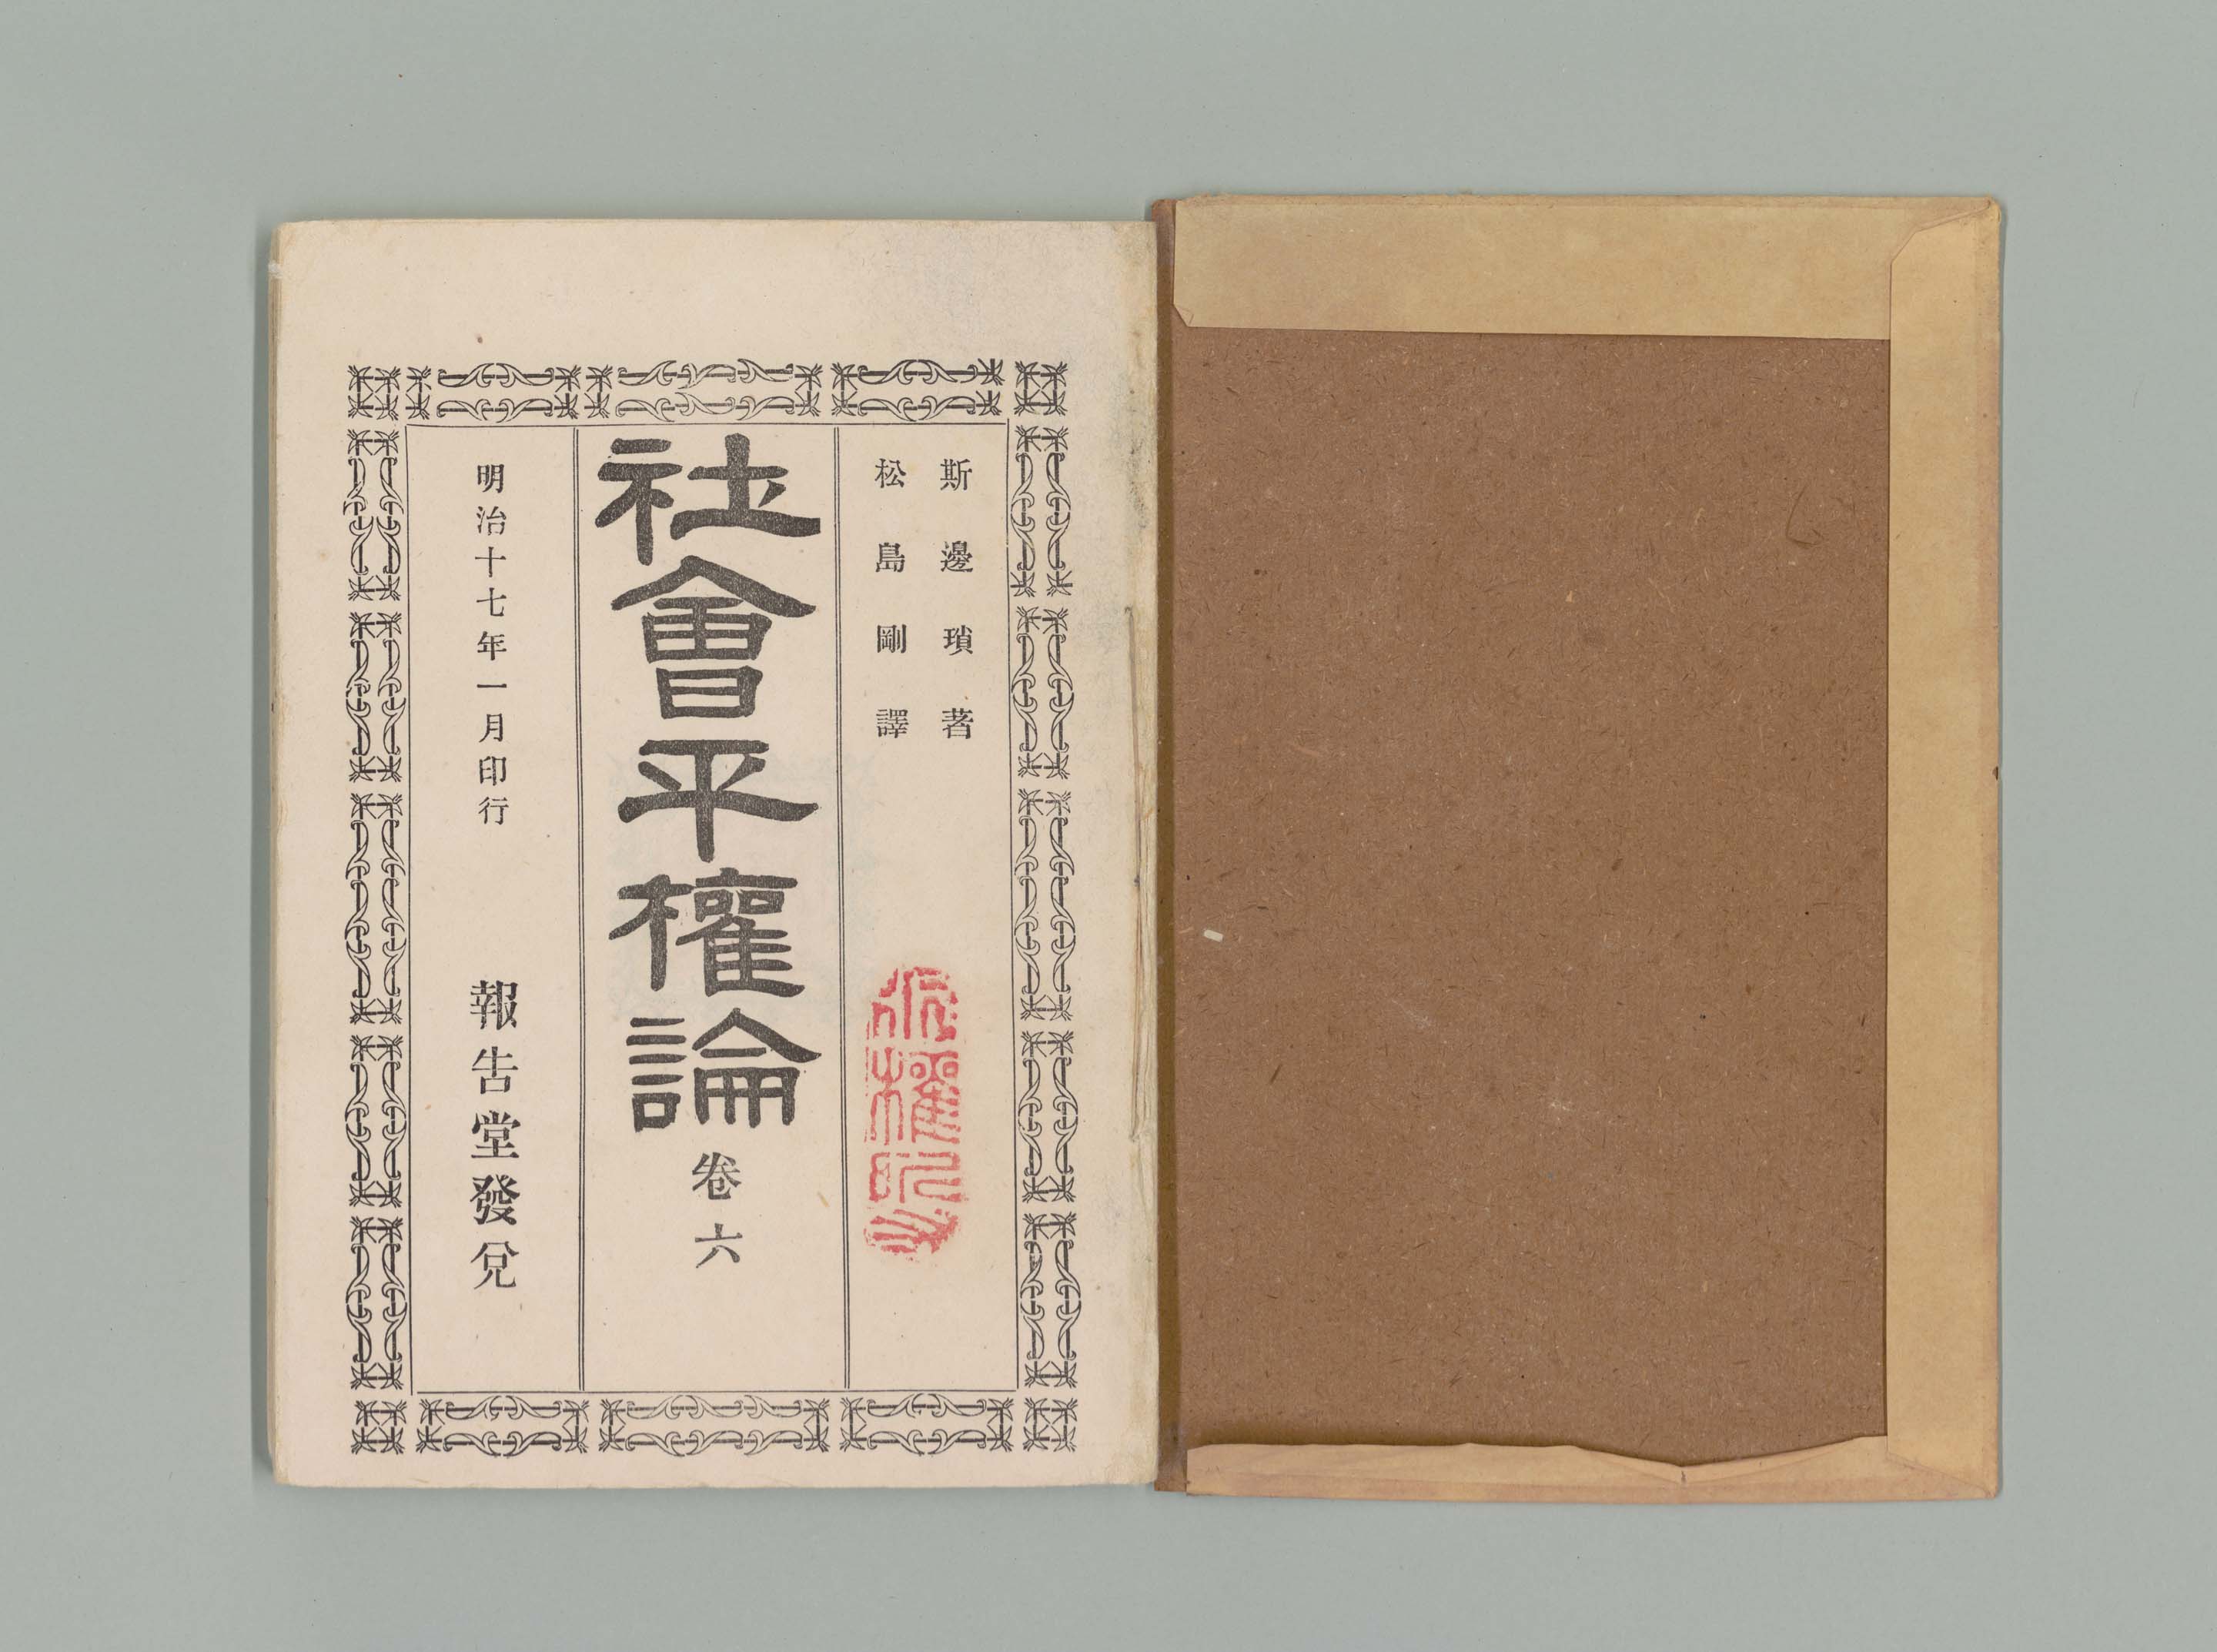 斯邊瑣著
松島剛譯
社會平權論卷六
明治十七年一月印行
報告堂發兌